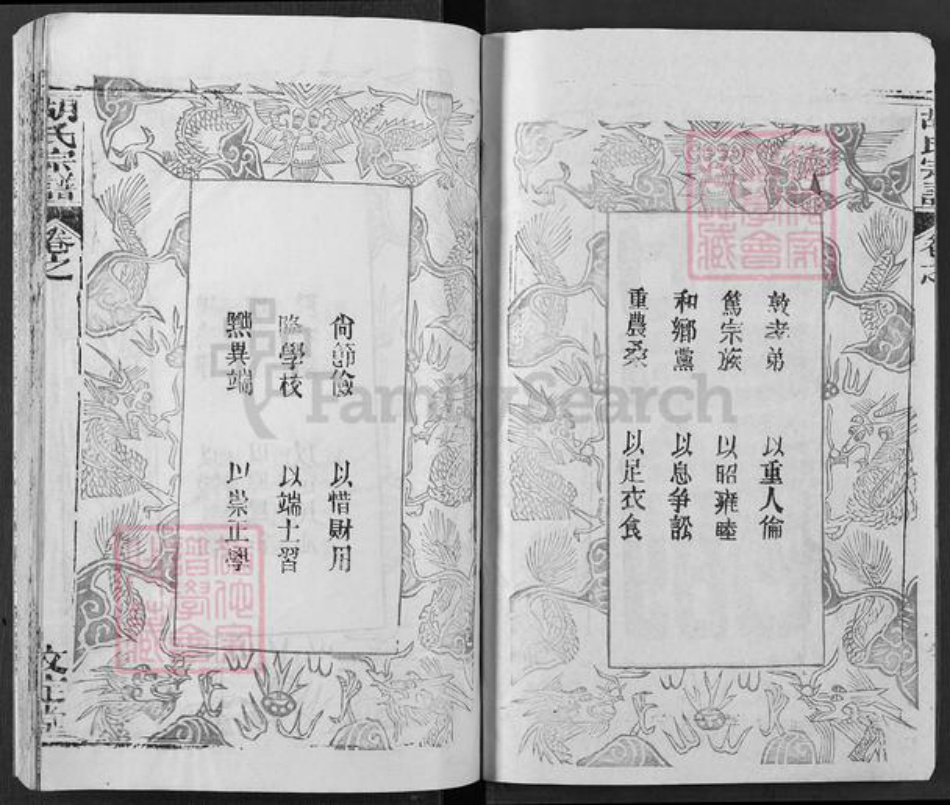 胡氏宗譜
敦孝弟　以重人倫
篤宗族　以昭雍睦
和鄉黨　以息爭訟
重農桑　以足衣食
尙節儉　以惜財用
隆學校　以端士習
黜異端　以崇正學
胡氏宗譜
卷之
FamilySearch